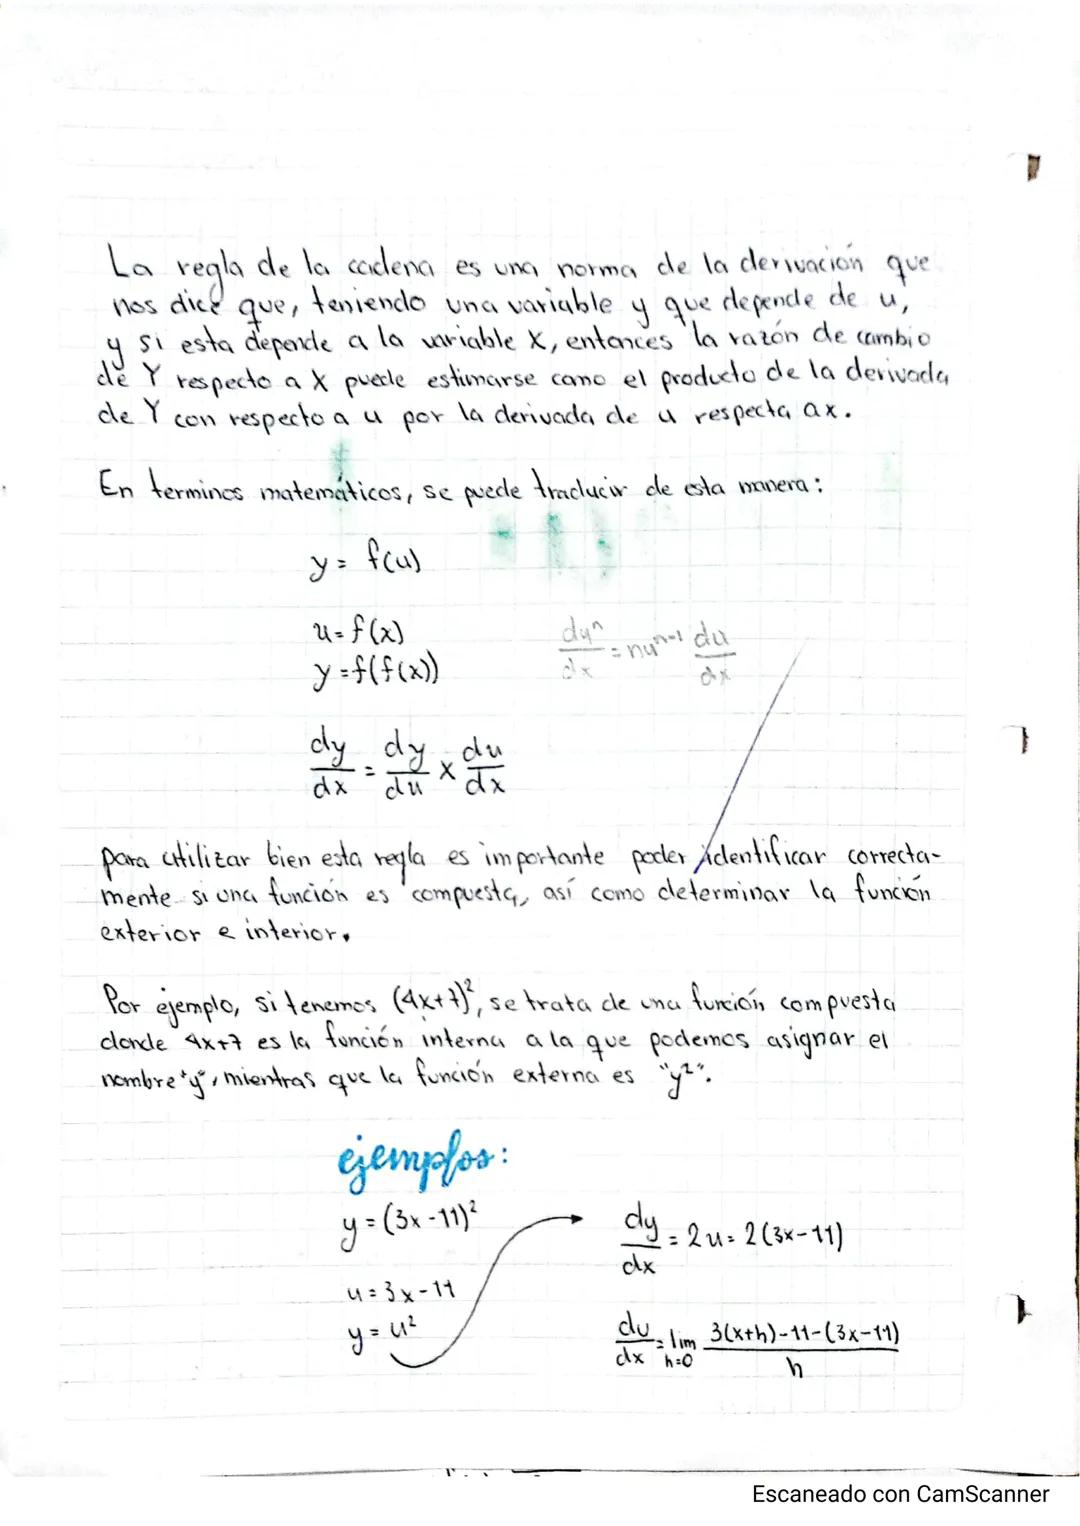 La regla de la cadena es una norma de la derivación que
nos dice que, teniendo una variable y que depende de u,
y si esta depende a la variable X, entonces la razón de cambio
de Y respecto a X puede estimarse como el producto de la derivada
de Y con respecto a u por la derivada de u respecta ax.
En terminos matemáticos, se puede traducir de esta manera:
y = f(u)
u = f(x)
y = f(f(x))
du^n/dx = nu^n-1 du/dx
dy/dx = dy/du x du/dx
para utilizar bien esta regla es importante poder identificar correcta-
mente si una función es compuesta, así como determinar la función
exterior e interior.
Por ejemplo, si tenemos (4x+7)², se trata de una función compuesta
donde 4x+7 es la función interna a la que podemos asignar el
nombre "y", mientras que la función externa es "y²".
ejemplos:
y = (3x-11)²
u = 3x-11
y = u²
dy/dx = 2u = 2(3x-11)
du/dx = lim h=0 3(x+h)-11-(3x-11)/h
Escaneado con CamScanner